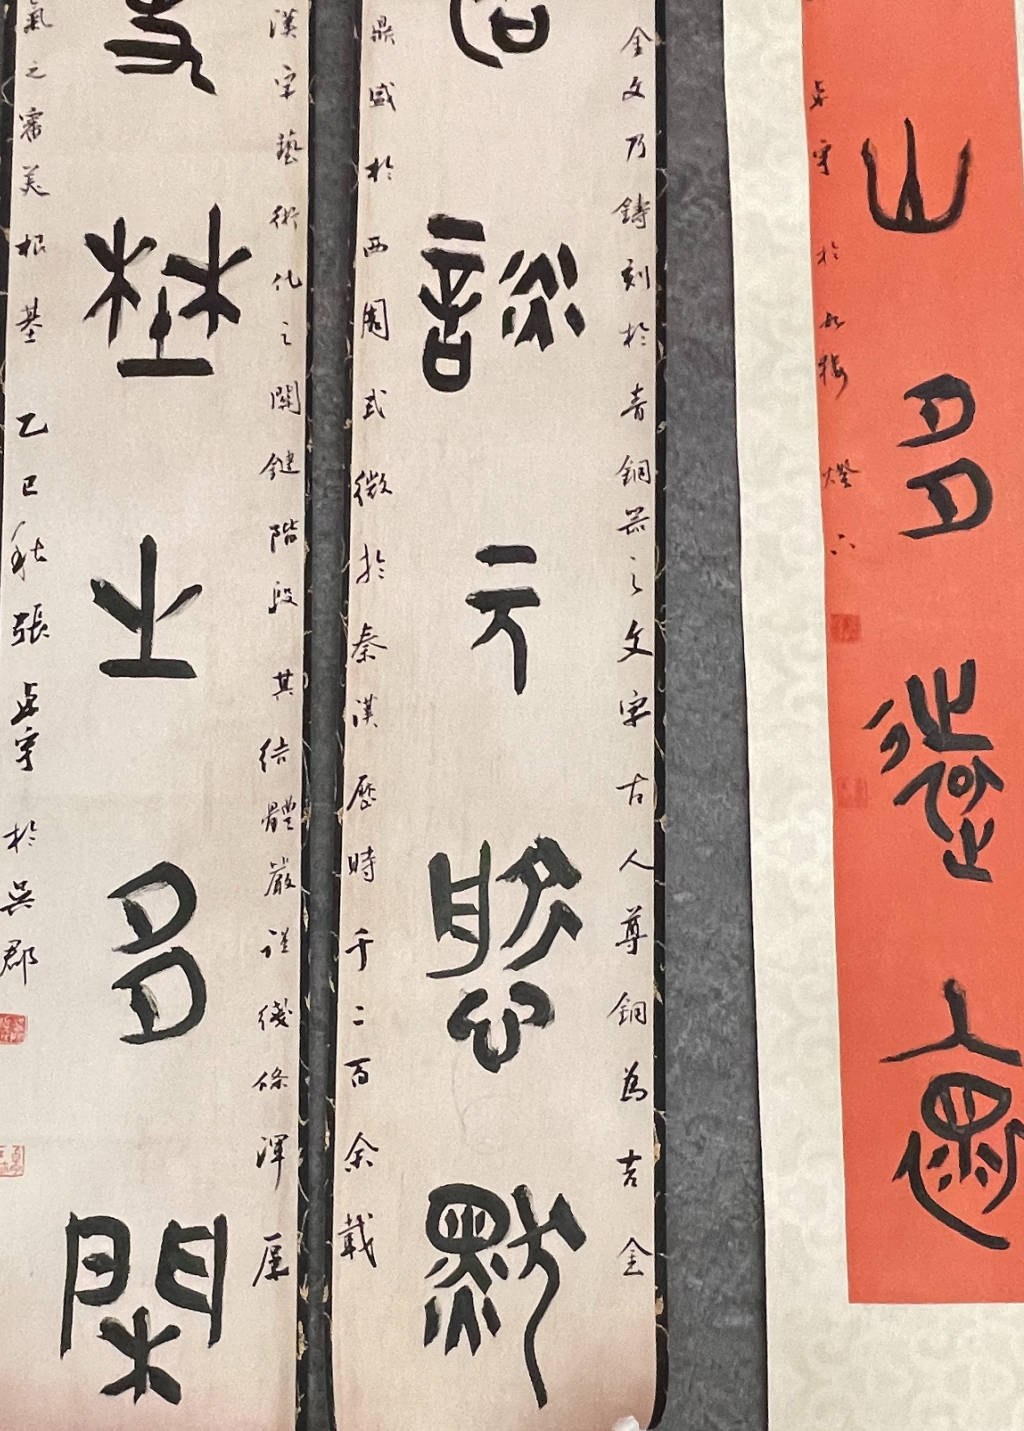 山多遠
卓宇於
金文乃鑄刻於青銅器之文字古人尊銅為吉金
詠于
鼎盛於西周式微於秦漢歷時千二百余載
漢字藝術化之關鍵階段其結體嚴謹綫條渾厚
埜之多閑
氣之審美根基 乙巳秋張卓宇於吳郡